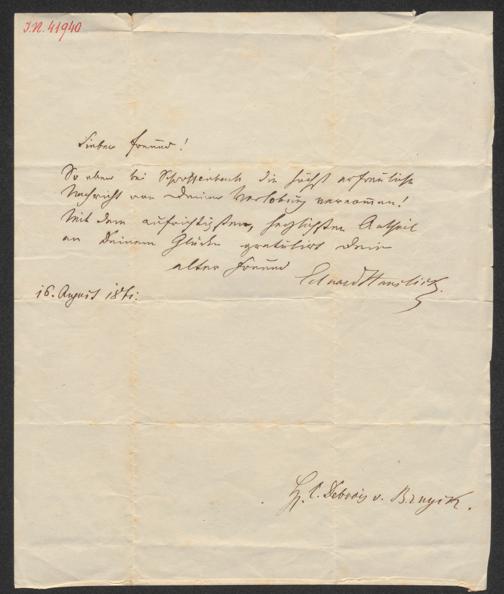 I.N. 41940
Lieber Freund!
So eben bei die höchst erfreuliche
Nachricht von Deiner Verlobung vernommen!
Mit dem aufrichtigsten, herzlichsten Antheil
an Deinem Glücke gratulirt Dein
alter Freund
Eduard Hanslick.
16. August
Debrois v. Bruyck.